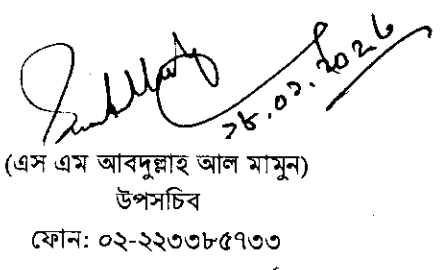 (এস এম আবদুল্লাহ আল মামুন)
উপসচিব
ফোন: ০২-২২৩৩৮৫৭৩৩